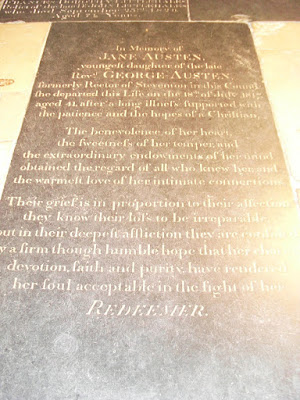 Aged 74 Years.
In Memory of
JANE AUSTEN,
youngeſt daughter of the late
Revd GEORGE AUSTEN,
formerly Rector of Steventon in this County
ſhe departed this Life on the 18th of July 1817,
aged 41, after a long illneſs ſupported with
the patience and the hopes of a Chriſtian.
The benevolence of her heart,
the ſweetneſs of her temper, and
the extraordinary endowments of her mind
obtained the regard of all who knew her and
the warmeſt love of her intimate connections.
Their grief is in proportion to their affection
they know their loſs to be irreparable,
but in their deepeſt affliction they are conſoled
by a firm though humble hope that her charity,
devotion, faith and purity, have rendered
her ſoul acceptable in the ſight of her
REDEEMER.